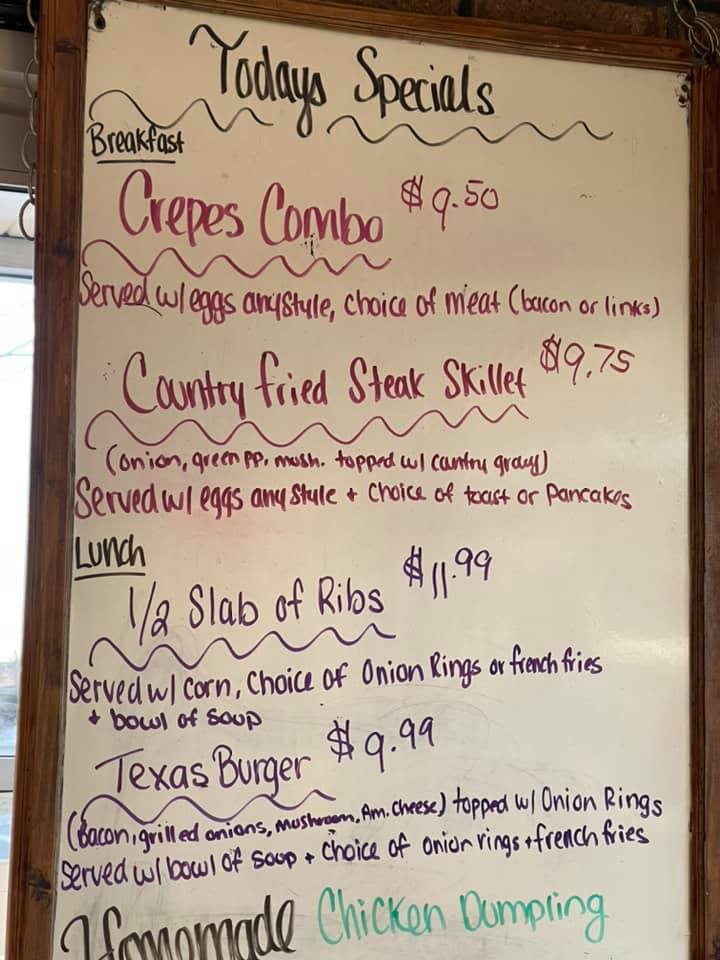 Todays Specials
Breakfast
Crepes Combo $9.50
Served w/ eggs any style, choice of meat (bacon or links)
Country fried Steak Skillet $9.75
(onion, green pp, mush. topped w/ cantry gravy)
Served w/ eggs any style + choice of toast or pancakes
Lunch
1/2 Slab of Ribs $11.99
Served w/ corn, choice of Onion Rings or french fries
+ bowl of soup
Texas Burger $9.99
(Bacon, grilled onions, mushroom, Am. cheese) topped w/ Onion Rings
Served w/ bowl of soup + choice of onion rings + french fries
Homomade Chicken Dumpling